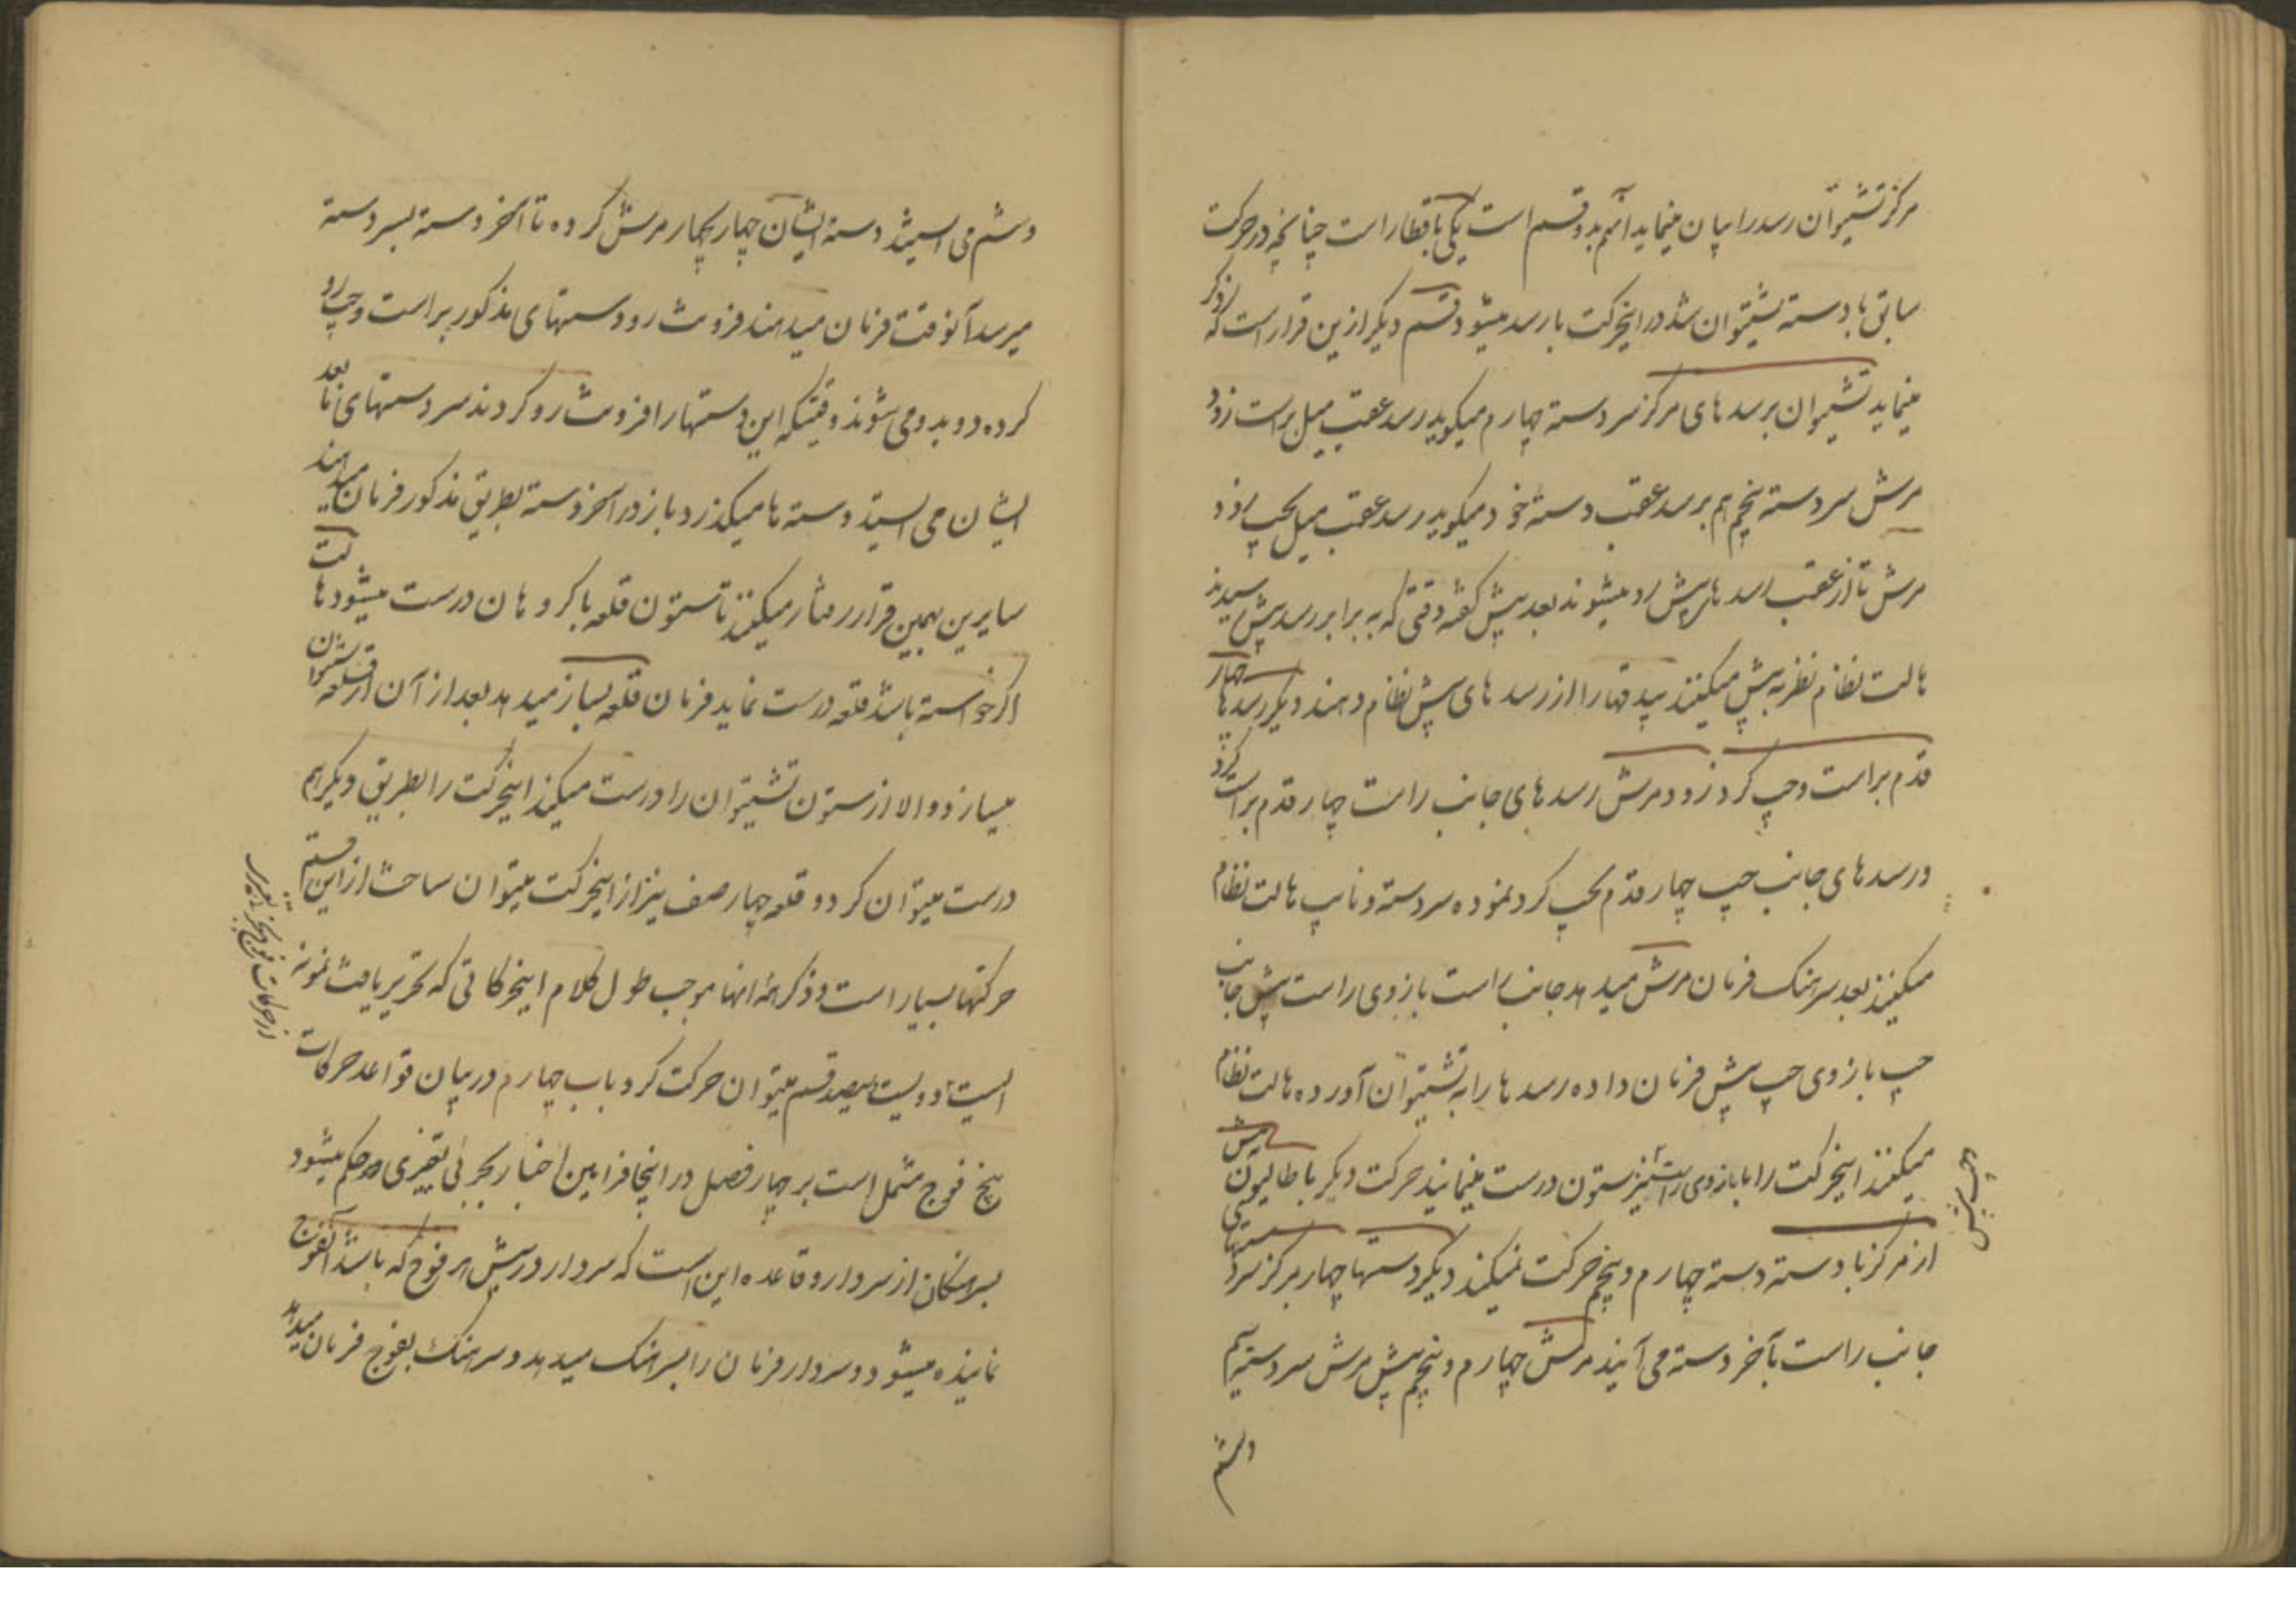 مرکز تشیتوان رسد را بیان مینماید انهم بدو قسم است یکی با قطار است چنانچه در حرکت
سابق با دسته تشیتوان شد در اینحرکت با رسد میشود و قسم دیگر ازین قرار است که
مینماید تشیتوان برسدهای مرکز سردسته چهارم میکوید رسد عقب میل براست زود
مرش سردسته پنجم هم برسد عقب دسته خود میکوید رسد عقب میل بچپ زود
مرش تا از عقب رسدهای پیش رد میشوند بعد پیش کفته وقتی که به برابر رسد پیش رسیدند
هالت نظام نظر به پیش میکنند بیدقها را از رسدهای پیش نظام دهند دیکر رسدها چهار
قدم براست و چپ کرد زود مرش رسدهای جانب راست چهار قدم براست کرد
و رسدهای جانب چپ چهار قدم بچپ کرد نموده سردسته و نایب هالت نظام
میکنند بعد سرهنک فرمان مرش میدهد جانب راست بازوی راست پیش جانب
چپ بازوی چپ پیش فرمان داده رسدها را به تشیتوان آورده هالت نظام
میکنند اینحرکت را با بازوی راست نیز ستون درست مینمایند حرکت دیکر باطالیون
از مرکز با دسته دسته چهارم و پنجم حرکت نمیکنند دیکر دستها چهار بمرکز
جانب راست بآخر دسته می آیند مرش چهارم و پنجم پیش مرش سردسته
وششم
وششم می ایستند دسته ایشان چهار بچهار مرش کرده تا آخر دسته بسردسته
میرسد آنوقت فرمان میدهند فرونت رو دستهای مذکور براست و چپ رو
کرده دو بدو می شوند وقتیکه این دستها را فرونت رو کردند سردستهای آنها بعد
ایشان می ایستند دسته ها میکذرد باز در آخر دسته بطریق مذکور فرمان میدهند
سایرین بهمین قرار رفتار میکنند تا ستون قلعه باکروهان درست میشود هالت
اکر خواسته باشد قلعه درست نماید فرمان قلعه بساز میدهد بعد از آن از قلعه ستون
میسازد والا از ستون تشیتوان را درست میکند اینحرکت را بطریق دیکر هم
درست میتوان کرد و قلعه چهار صف نیز از اینحرکت میتوان ساخت از این قسم
حرکتها بسیار است و ذکر همه انها موجب طول کلام اینحرکاتی که تحریر یافت نمونه
ایست تا دویست سیصد قسم میتوان حرکت کرد باب چهارم در بیان قواعد حرکات
پنج فوج مشتمل است بر چهار فصل در اینجا فرامین اخبار بجزئی تغییری حکم میشود
بسرهنکان از سردار و قاعده این است که سردار در پیش هر فوج که باشد آنفوج
نماینده میشود و سردار فرمان را بسرهنک میدهد و سرهنک بفوج فرمان میدهد